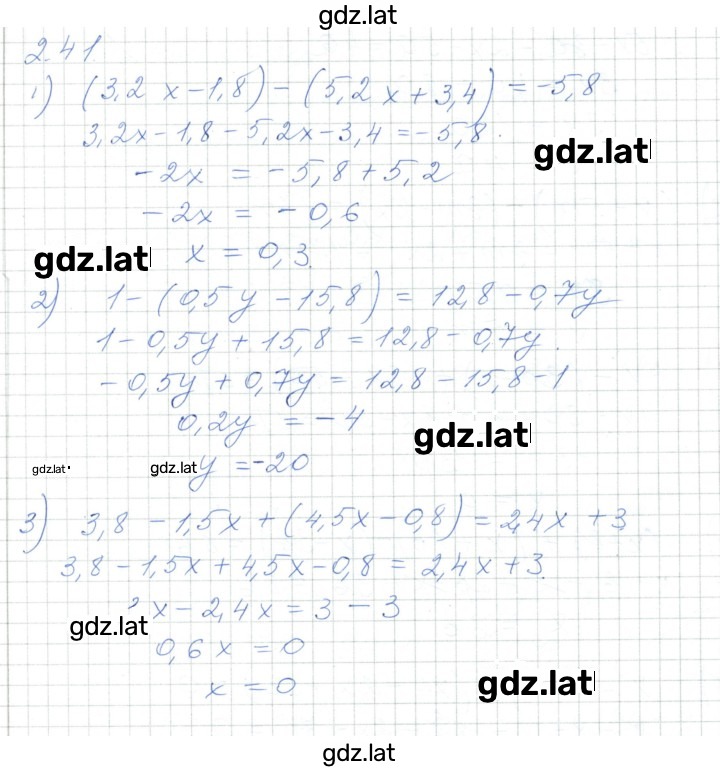 gdz.lat
2.41
1) (3,2 x - 1,8) - (5,2 x + 3,4) = -5,8
3,2x - 1,8 - 5,2x - 3,4 = -5,8.
gdz.lat
-2x = -5,8 + 5,2
-2x = -0,6
gdz.lat x = 0,3.
2) 1 - (0,5y - 15,8) = 12,8 - 0,7y
1 - 0,5y + 15,8 = 12,8 - 0,7y.
-0,5y + 0,7y = 12,8 - 15,8 - 1
0,2y = -4
gdz.lat
gdz.lat gdz.lat y = -20
3) 3,8 - 1,5x + (4,5x - 0,8) = 2,4x + 3
3,8 - 1,5x + 4,5x - 0,8 = 2,4x + 3.
x - 2,4x = 3 - 3
gdz.lat
0,6x = 0
x = 0
gdz.lat
gdz.lat